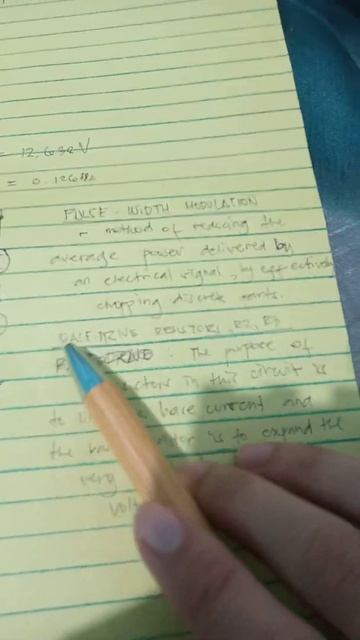 = 12.632V
= 0.126
PULSE-WIDTH MODULATION
- method of reducing the
average power delivered by
an electrical signal, by effectively
chopping discrete parts.
BASE-DRIVE RESISTORS, R2, R3
The purpose of
in this circuit is
to base current and
the is to expand the
very